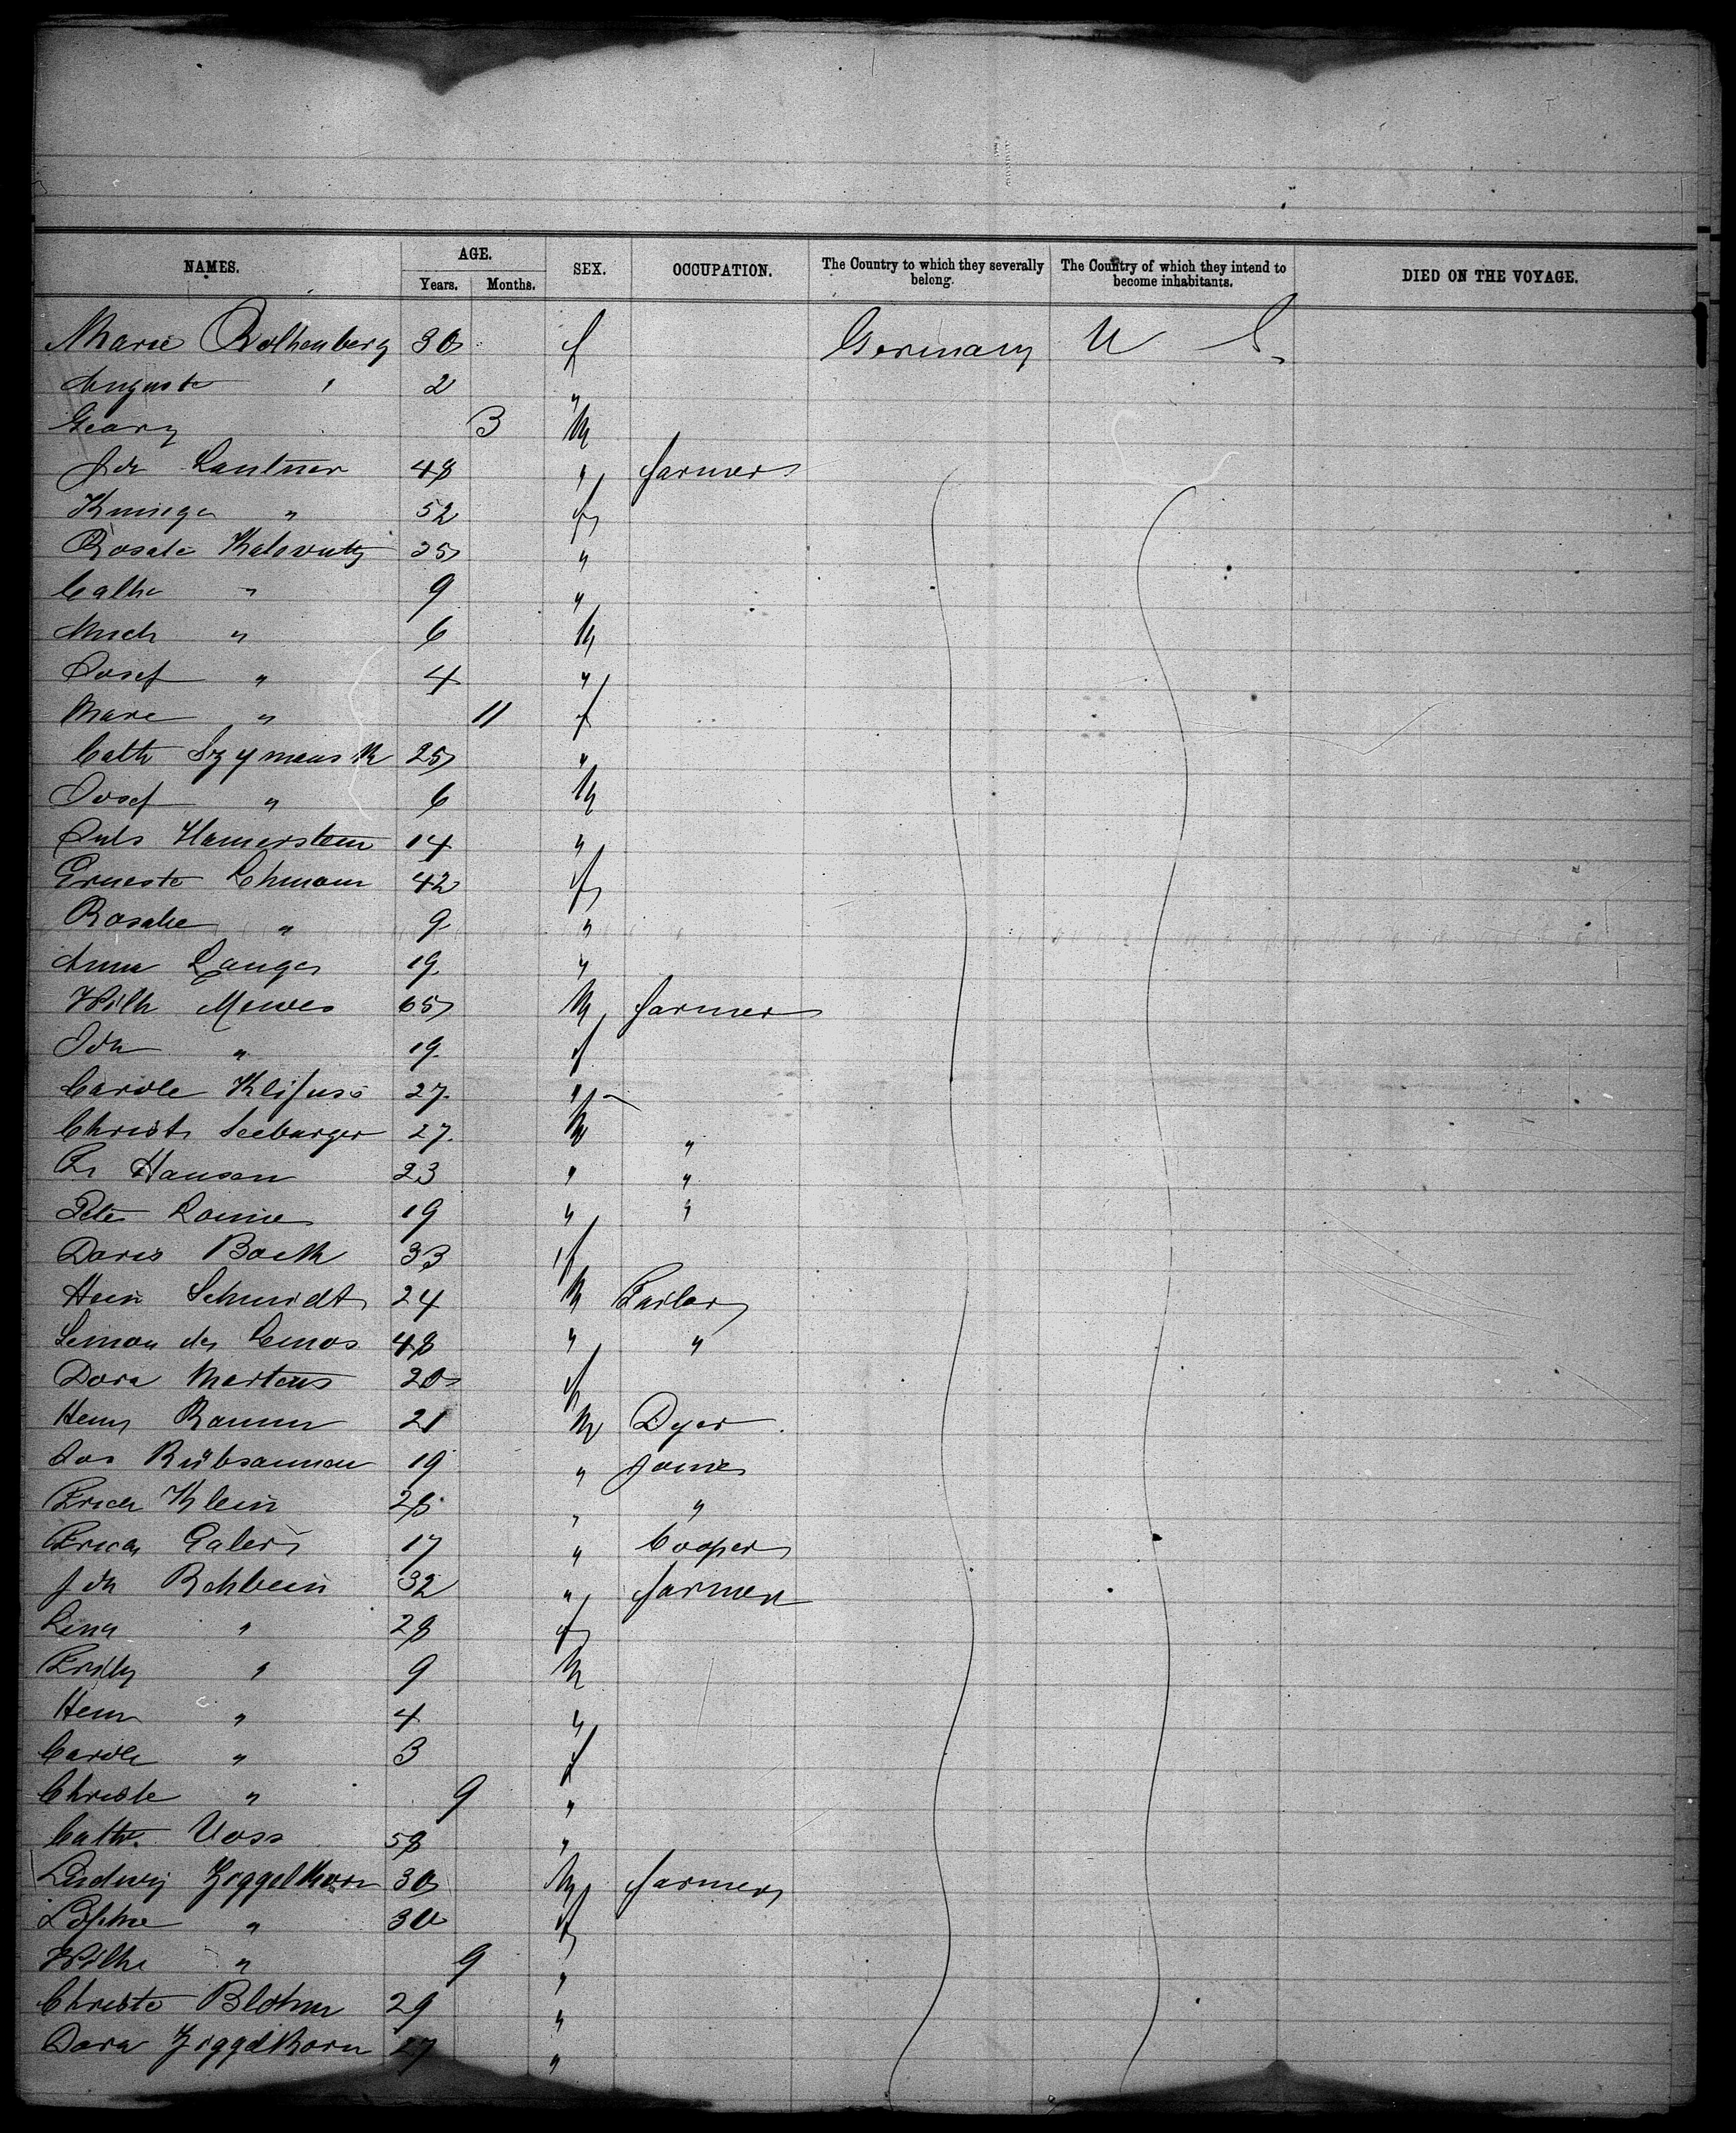 NAMES. AGE. SEX. OCCUPATION. The Country to which they severally belong. The Country of which they intend to become inhabitants. DIED ON THE VOYAGE.
Years. Months.
Marie Rothenberg 30 f Germany U S
Auguste " 2 "
Georg 3 M
Joh Lantner 48 " farmer
" 52 f
Rosalie 25 "
Cathe " 9 "
Mich " 6 M
Josef " 4 "
Marie " 11 f
Cath Szymansk 25 "
Josef " 6 M
Juls Hamerstein 14 "
Erneste Lehmann 42 f
Rosalie " 9 "
Anna Langer 19 "
Wilh Mewes 65 M farmer
Ida " 19 f
Carole Klifuss 27 "
Christ Seeburger 27 M "
Fr Hansen 23 " "
Peter 19 " "
Doris Boeck 33 f
Hein Schmidt 24 M Tailor
Simon de Lemos 48 " "
Dora Martens 20 f
Henry Ramm 21 M Dyer
Jos Rübsamman 19 " Joiner
Frich Klein 28 " "
Frich 17 " Cooper
Joh Rehbein 32 " farmer
Lina " 28 f
" 9 M
Henr " 4 "
Carole " 3 f
Christe " 9 "
Cathe. Voss 58 "
Ludwig Ziggelkorn 30 M farmer
Sophie " 30 f
Wilhe " 9 "
Christe Blohm 29 "
Dora Ziggelkorn 27 "